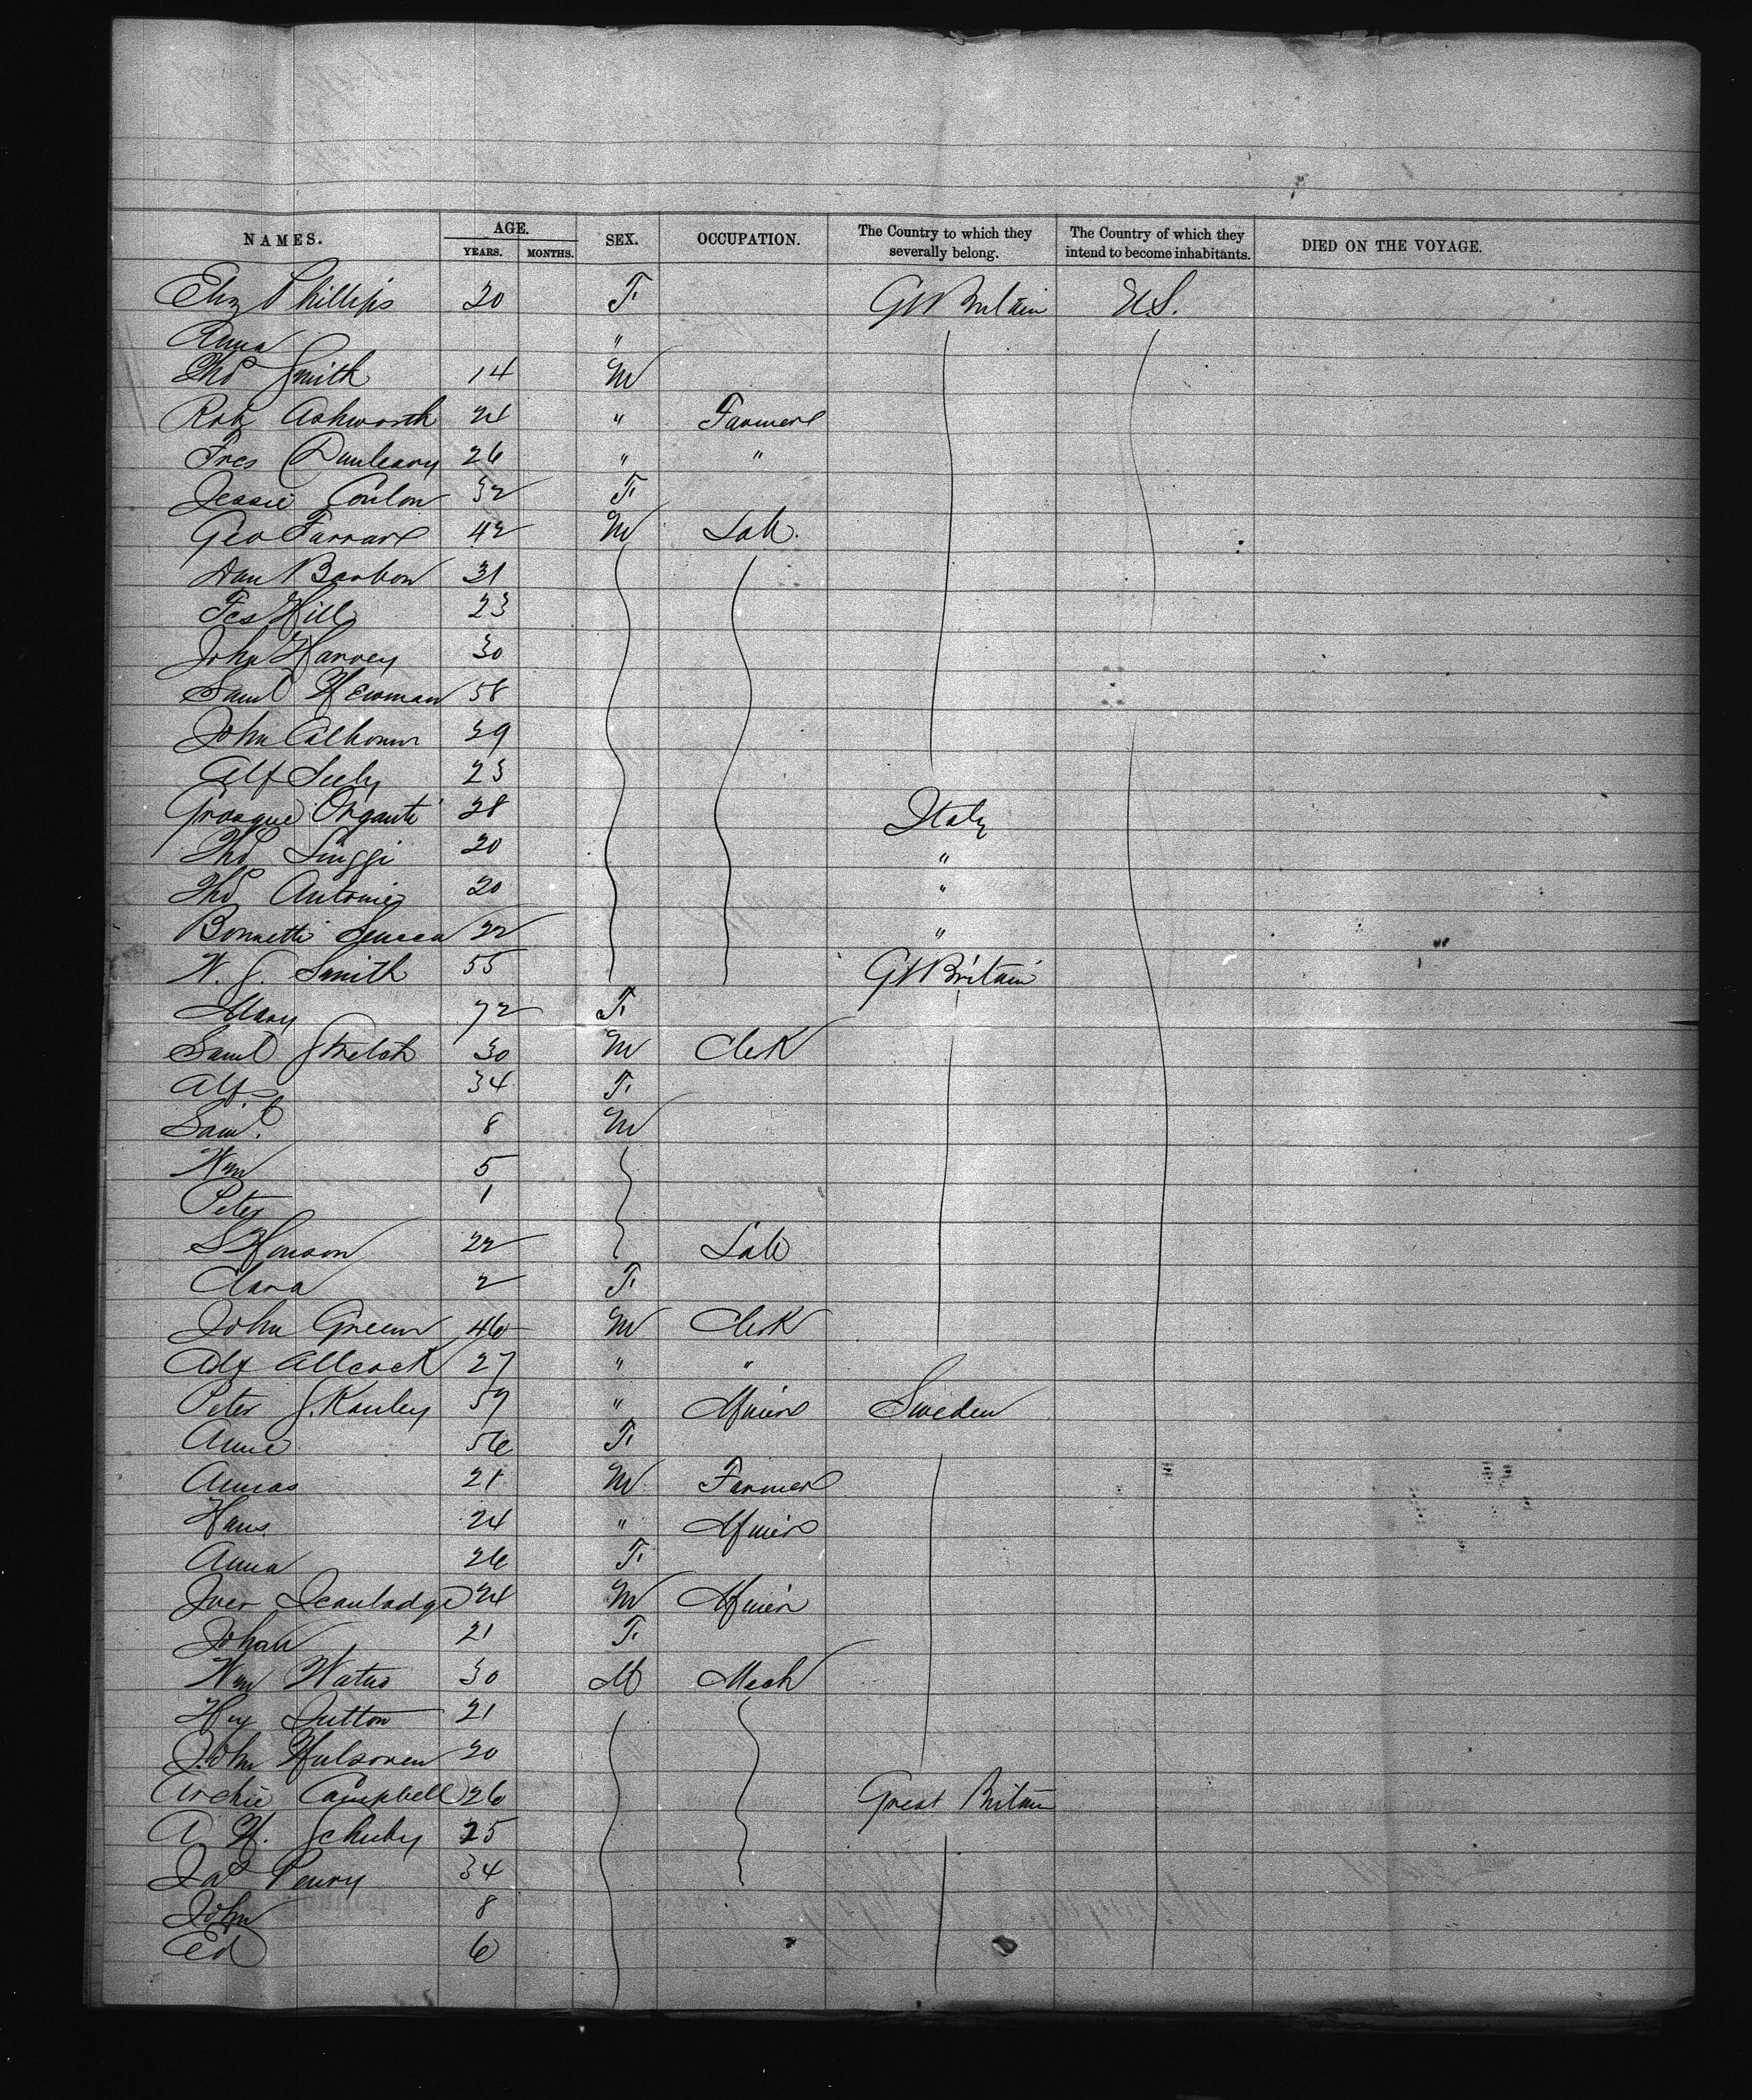 NAMES. AGE. YEARS. MONTHS. SEX. OCCUPATION. The Country to which they severally belong. The Country of which they intend to become inhabitants. DIED ON THE VOYAGE.
Eliz Phillips 20 F. Gt Britain U.S.
Anna "
Thos Smith 14 M
Rob Ashworth 24 " Farmer
Fres 26 " "
Jessie Conlon 32 F.
Geo Farrar 42 M Lab.
Dan Barbow 31
Fcs Hill 23
John Harvey 30
Saml Newman 58
John Calhoun 29
Alf 23
Organti 28 Italy
Thos Linggi 20 "
Thos Antonie 20 "
Bonnetti 22 "
W. J. Smith 55 Gt Britain
Mary 72 F.
Saml Stretch 30 M Clerk
Alf 34 F.
Saml. 8 M
Wm 5
Peter 1
S Henson 22 Lab
Clara 2 F.
John Green 46 M Clerk
Alf Allcock 27 " "
Peter 59 " Miner Sweden
Anne 56 F.
21 M Farmer
Hans 24 " Miner
Anna 26 F.
Iver 24 M Miner
Johan 21 F.
Wm Waters 30 M Mech
Hy Sutton 21
John 20
Archie Campbell 26 Great Britain
A. H. 25
Jas Penry 34
John 8
Ed 6